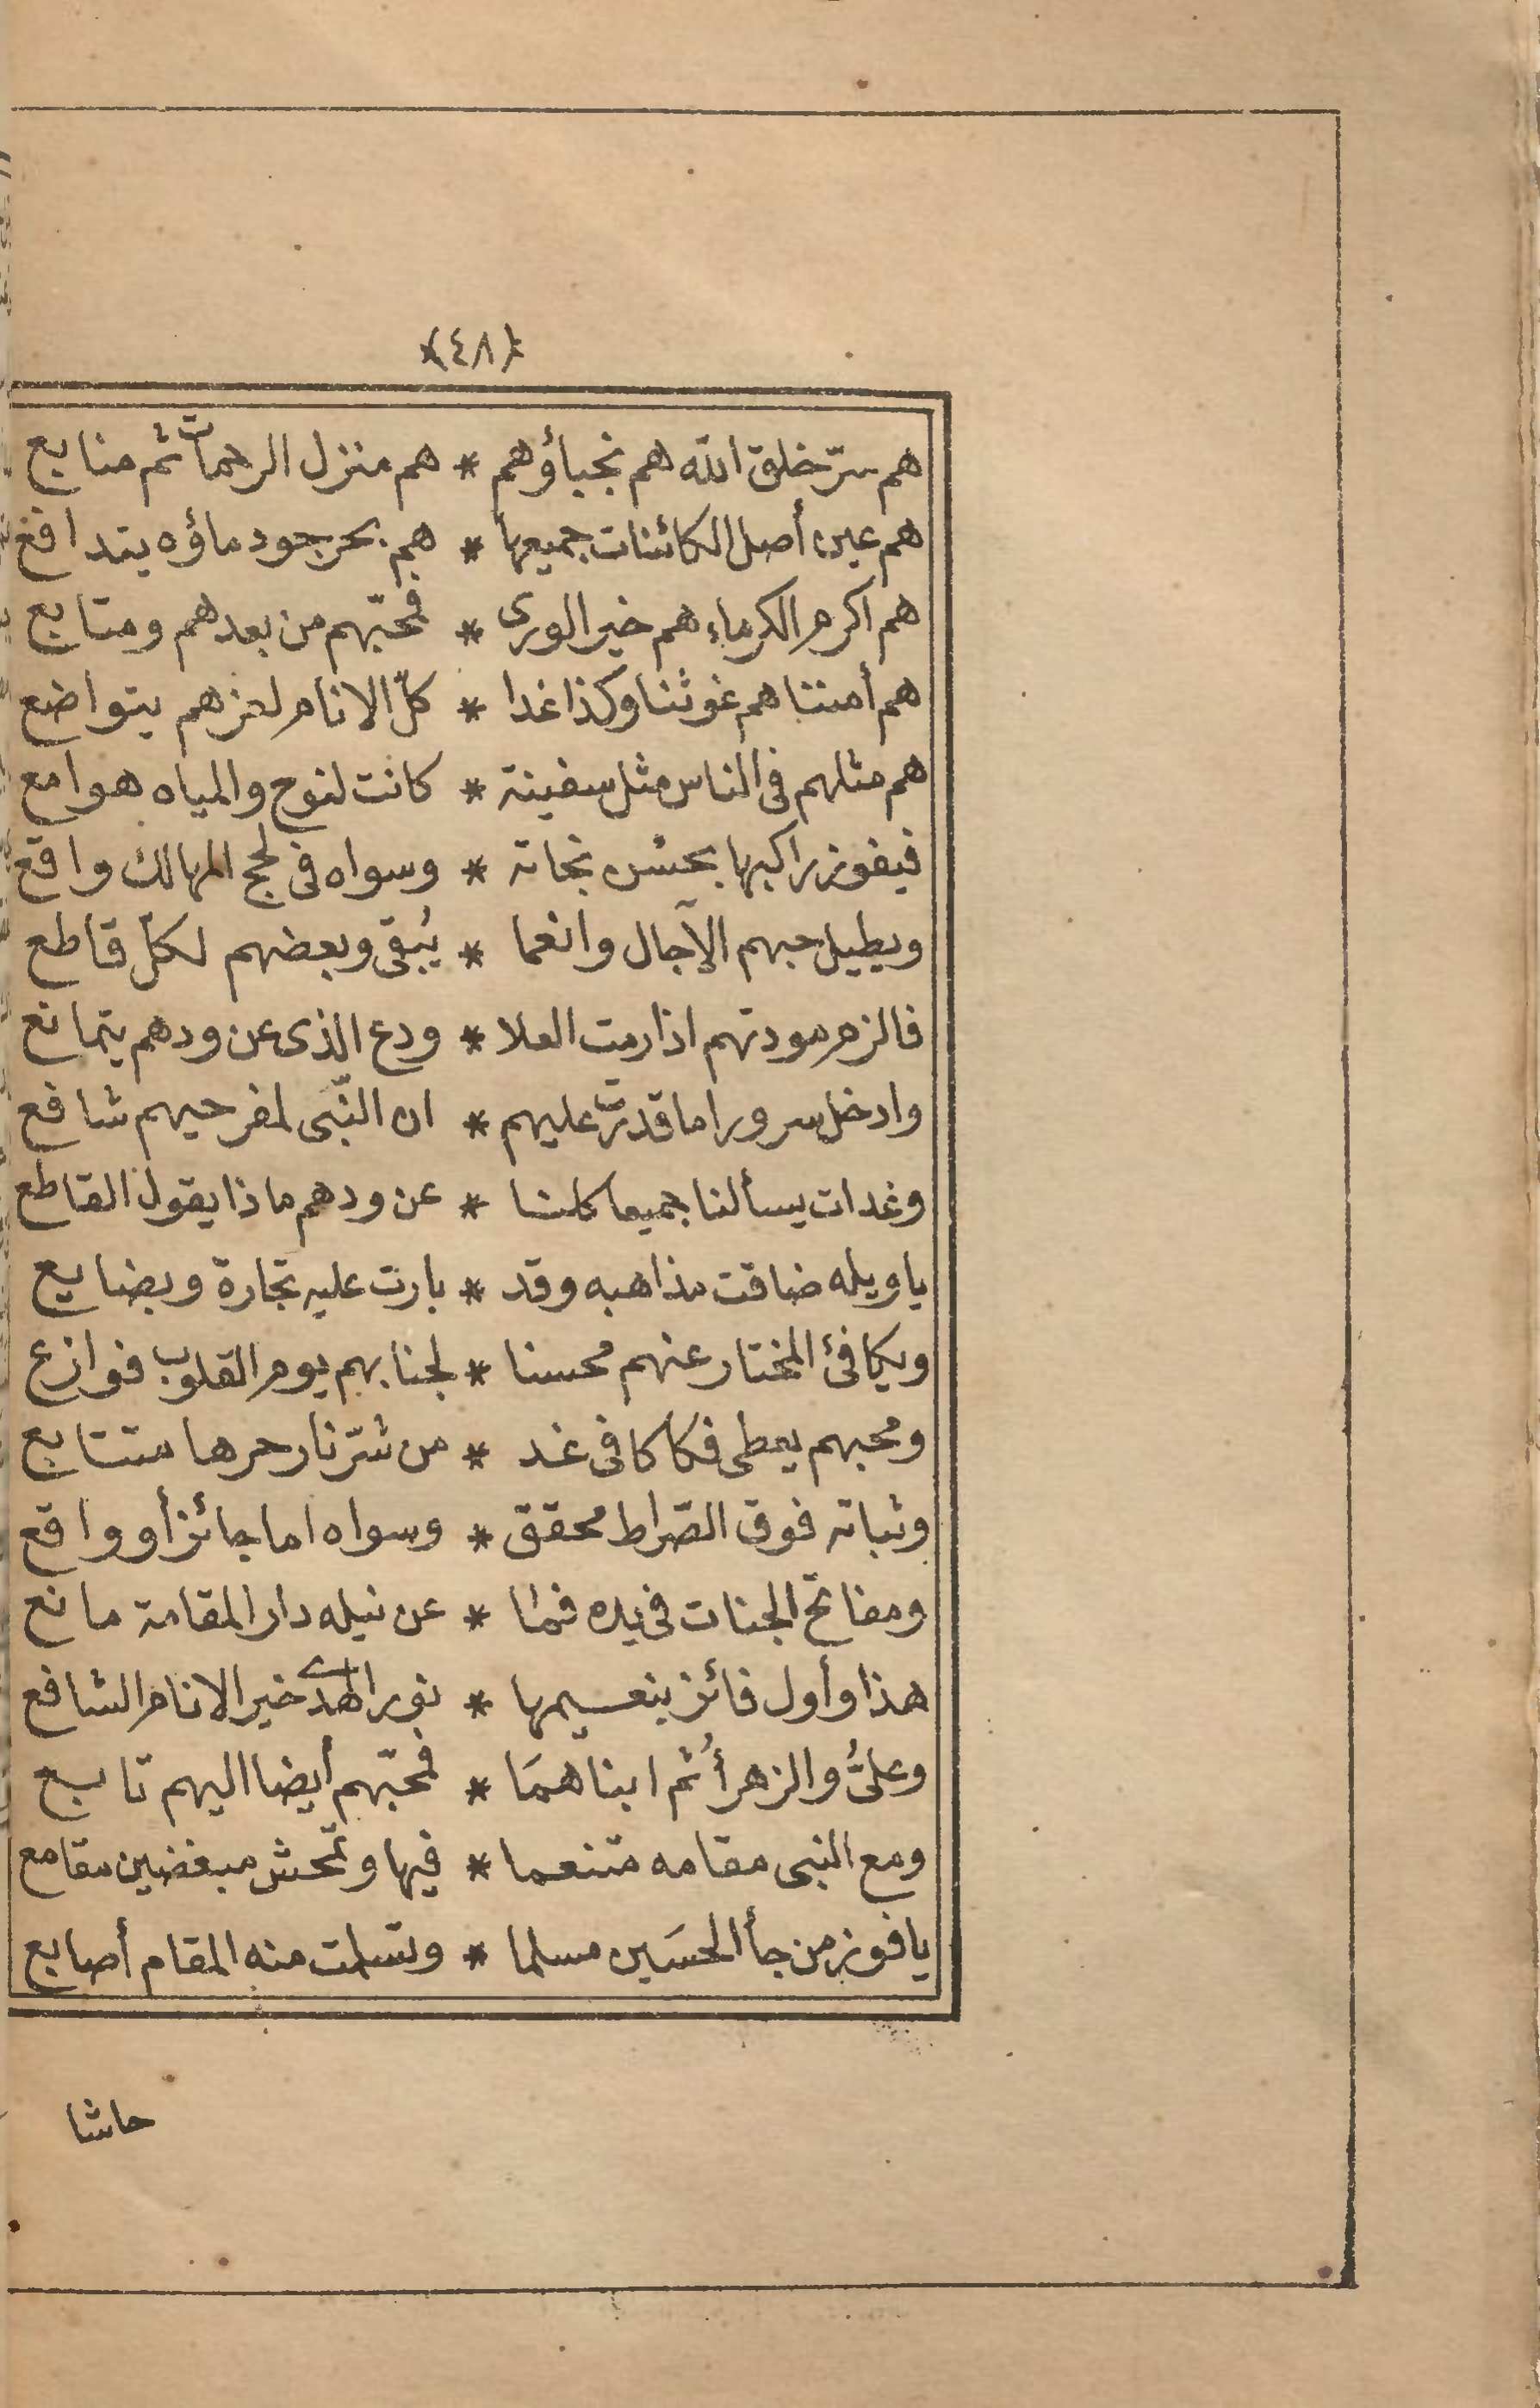 (٤٨)
هم سرّ خلق الله هم نجباؤهم * هم منزل الرحمات ثم منابع
هم عين أصل الكائنات جميعها * هم بحر جود ماؤه يتدافع
هم اكرم الكرماء هم خير الورى * فمحبّهم من بعدهم ومتابع
هم أمننا هم غوثنا وكذا غدا * كلّ الانام لعزهم يتواضع
هم مثلهم فى الناس مثل سفينة * كانت لنوح والمياه هوامع
فيفوز راكبها بحسن نجاته * وسواه فى لجج المهالك واقع
ويطيل حبهم الآجال وانعما * يُبقى وبعضهم لكلّ قاطع
فالزم مودتهم اذا رمت العلا * ودع الذى عن ودهم يتمانع
وادخل سرورا ما قدرت عليهم * ان النّبى لمفرحيهم شافع
وغدات يسألنا جميعا كلنا * عن ودهم ماذا يقول القاطع
يا ويله ضاقت مذاهبه وقد * بارت عليه تجارة وبضايع
ويكافئ المختار عنهم محسنا * لجنابهم يوم القلوب فوازع
ومحبهم يعطى فكاكا فى غد * من شرّ نار حرها متتابع
وثباته فوق الصّراط محقق * وسواه اما جائز أو واقع
ومفاتح الجنات فى يده فما * عن نيله دار المقامة مانع
هذا وأول فائز بنعيمها * نور الهدى خير الانام الشافع
وعلىُّ والزهرأُ ثم ابناهمَا * فمحبّهم أيضا اليهم تابع
ومع النبى مقامه متنعما * فيها وتمحش مبغضين مقامع
يا فوز من جأ الحسَين مسلما * وتسلمت منه المقام أصابع
حاشا